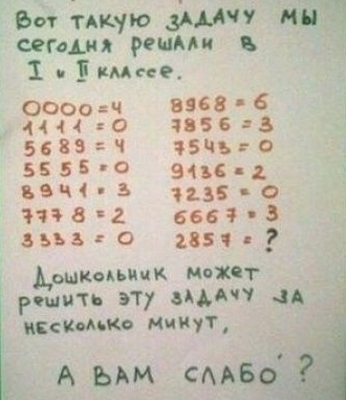 Вот такую задачу мы
сегодня решали в
I и II классе.
0000=4 8968=6
1111=0 7856=3
5689=4 7543=0
5555=0 9136=2
8941=3 7235=0
7778=2 6667=3
3333=0 2857=?
Дошкольник может
решить эту задачу за
несколько минут,
А ВАМ СЛАБО?